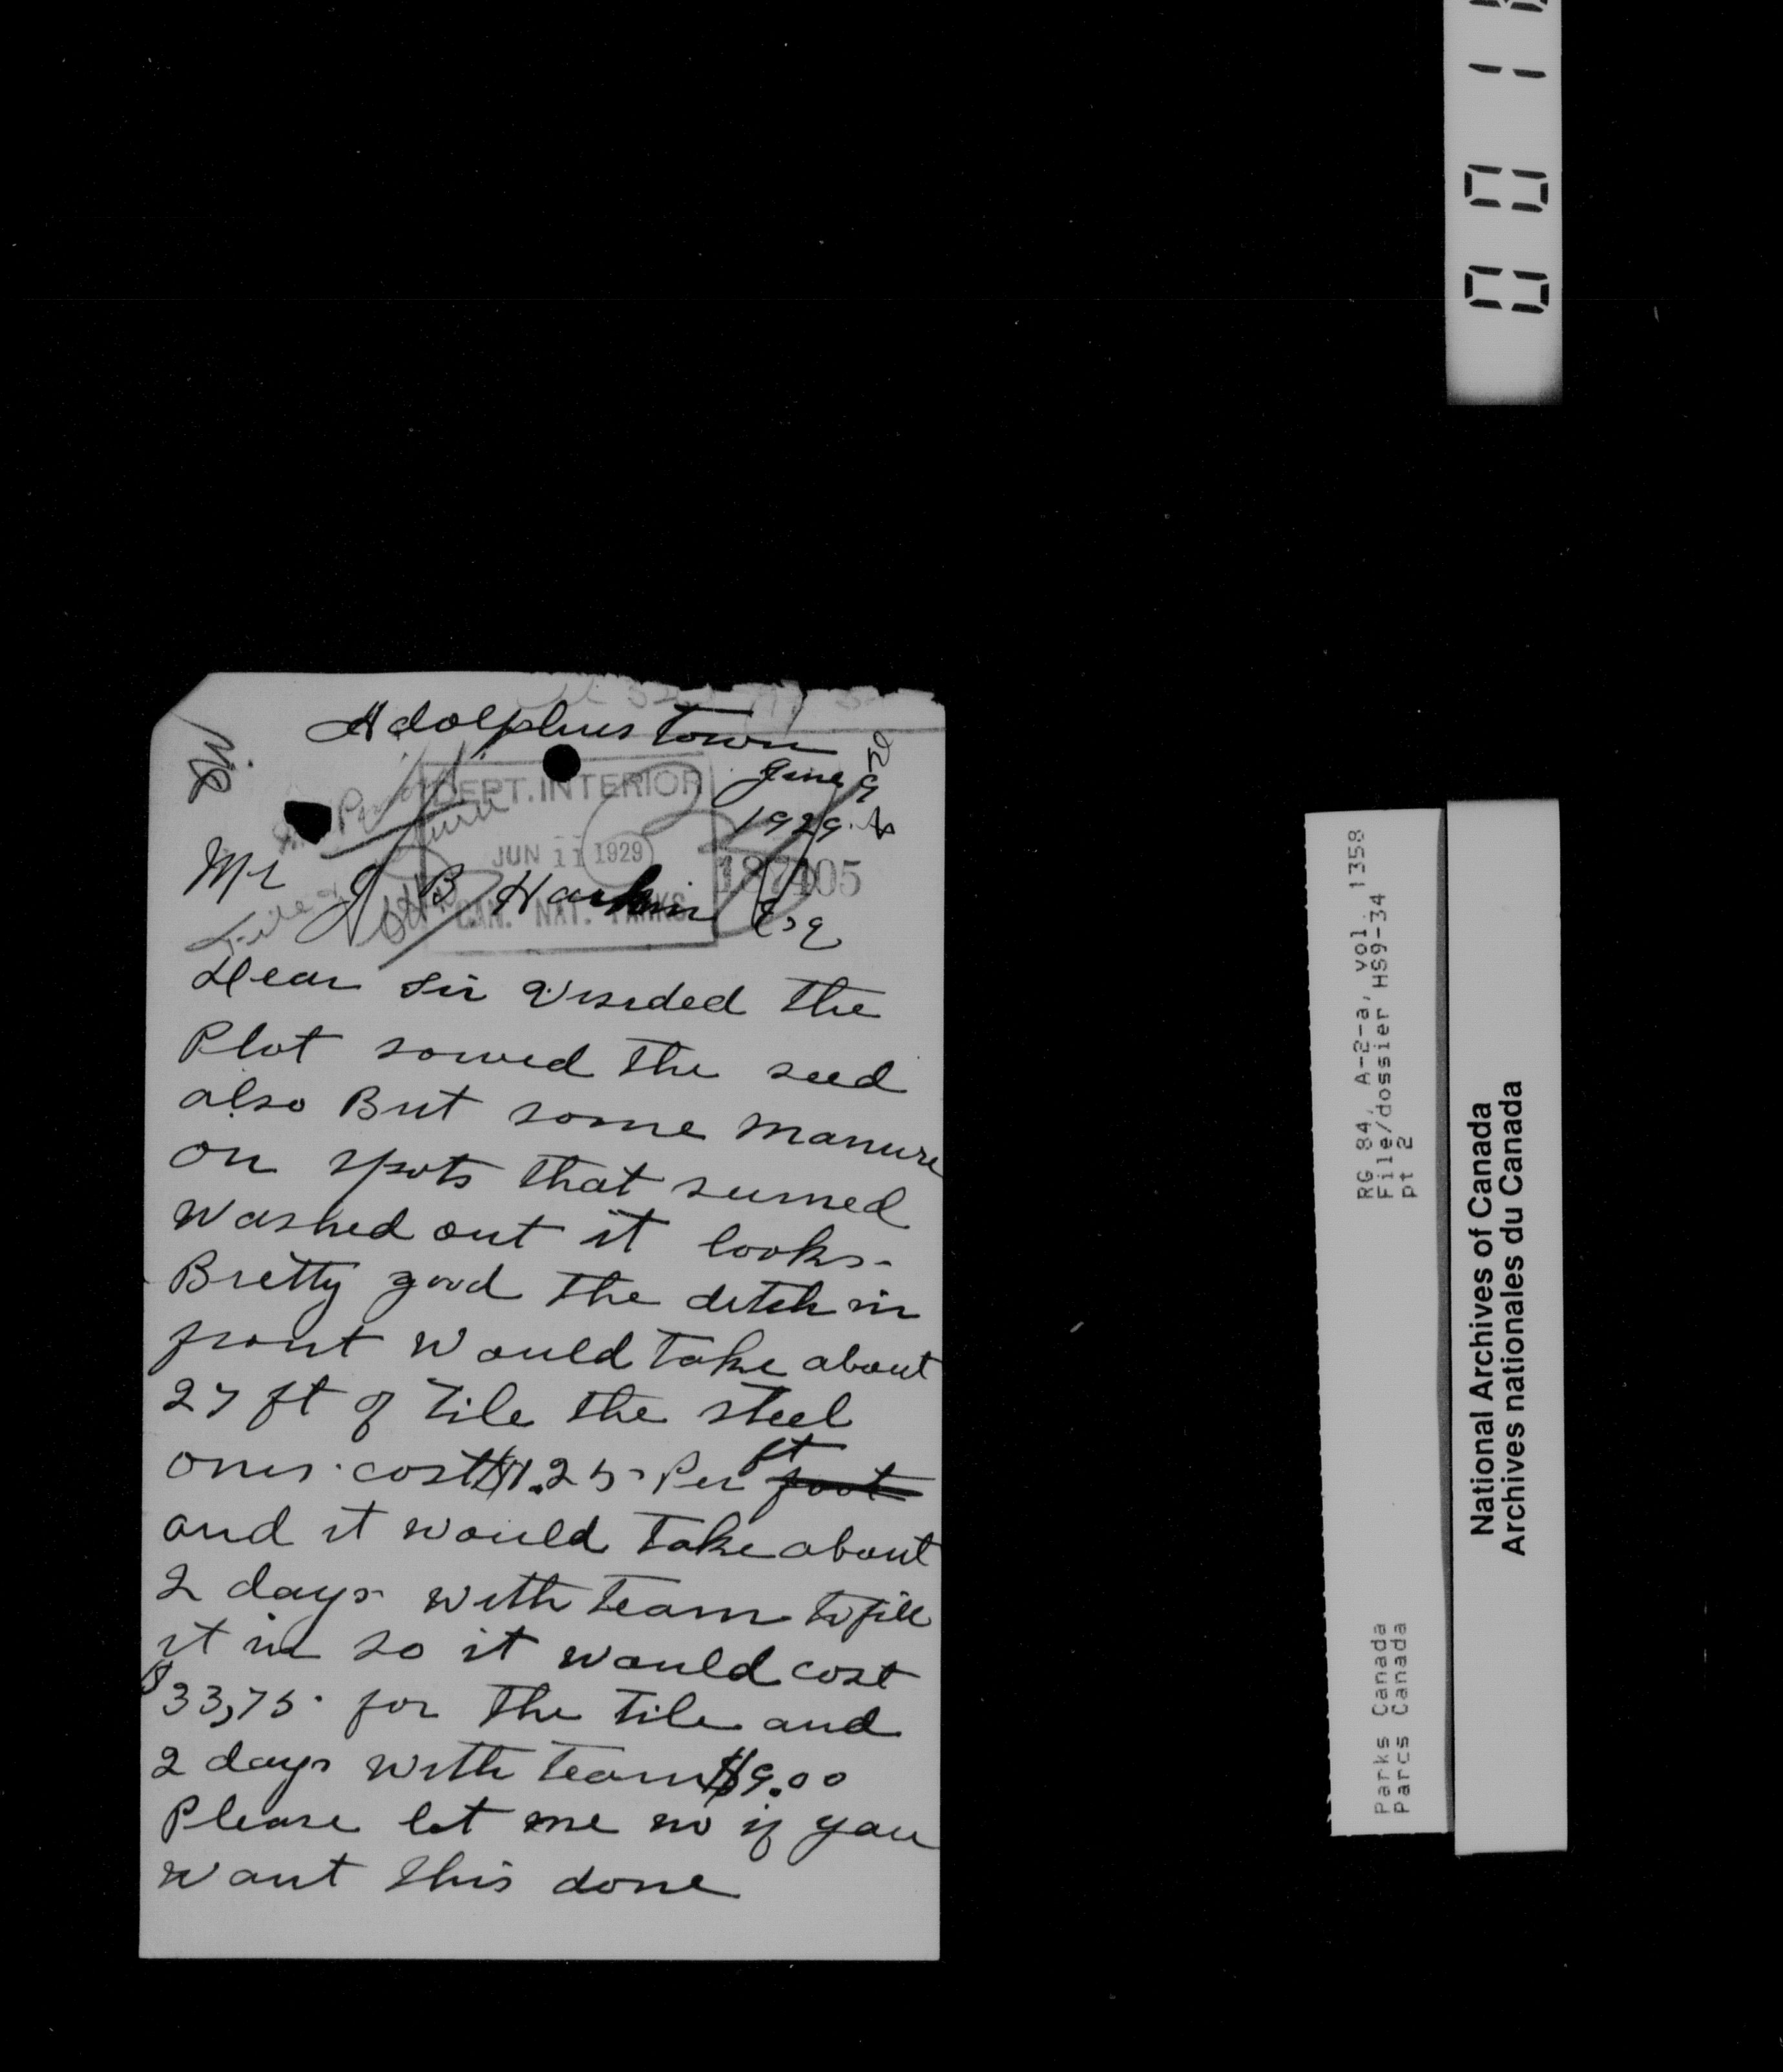 Adolphus Town
June 9
1929
DEPT. INTERIOR
JUN 11 1929
187405
CAN. NAT. PARKS
Mr J B Harkin Esq
Dear Sir Visided the
Plot sowed the seed
also But some manure
on spots that seemed
washed out it looks
Bretty good the ditch in
front would take about
27 ft of Tile the steel
ones cost $1.25 Per ft foot
and it would take about
2 days with team to fill
it in so it would cost
$33,75 for the tile and
2 days with team $9.00
Please let me no if you
want this done
RG 84, A-2-a, vol. 1358
File/dossier HS9-34
pt 2
Parks Canada
Parcs Canada
National Archives of Canada
Archives nationales du Canada